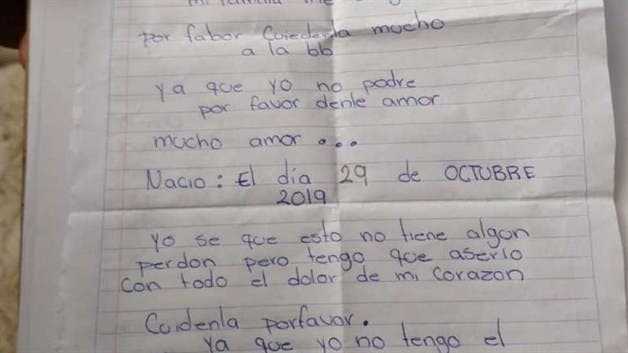 mi familia me
por fabor Coiedenla mucho
a la bb
ya que yo no podre
por favor denle amor
mucho amor ...
Nacio: El día 29 de OCTUBRE
2019
yo se que esto no tiene algun
perdon pero tengo que aserlo
con todo el dolor de mi corazon
Cuidenla porfavor.
ya que yo no tengo el